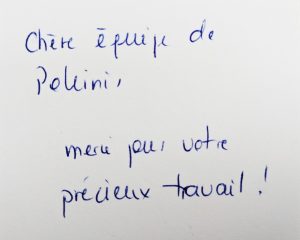 Chère équipe de
Pollini,
merci pour votre
précieux travail !